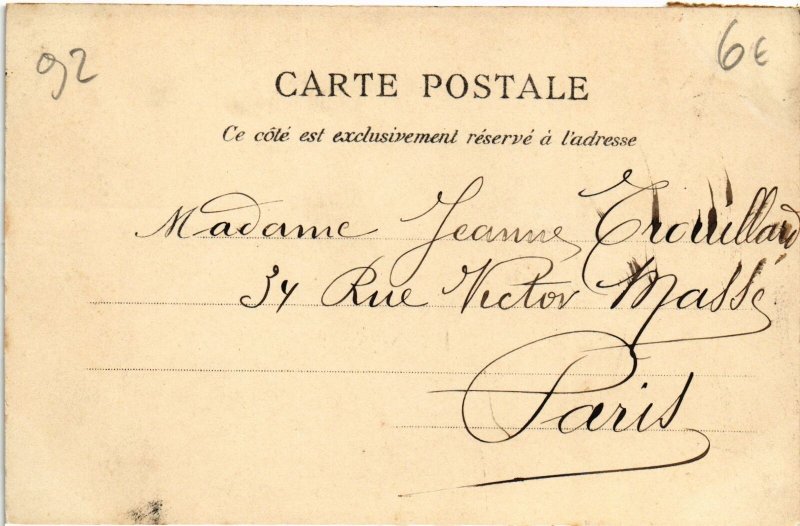 92
6€
CARTE POSTALE
Ce côté est exclusivement réservé à l'adresse
Madame Jeanne Trouillard
34 Rue Victor Massé
Paris